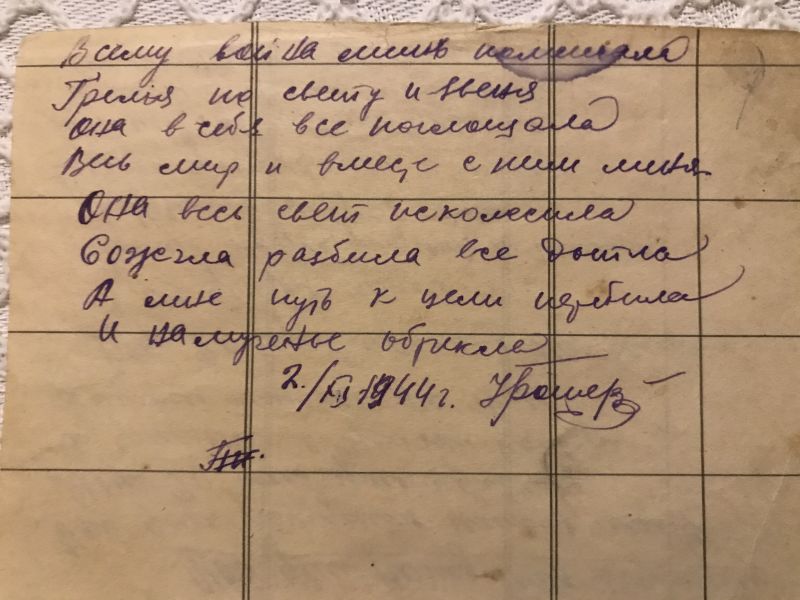 Всему война мине помешала
Гремя по свету и звеня
Она в себя все поглощала
Весь мир и вмеце с ним миня
Она весь свет исколесила
Сожгла разбила все дотла
А мине путь к цели перебила
И на мученье обрикла
2./XI 1944 г.